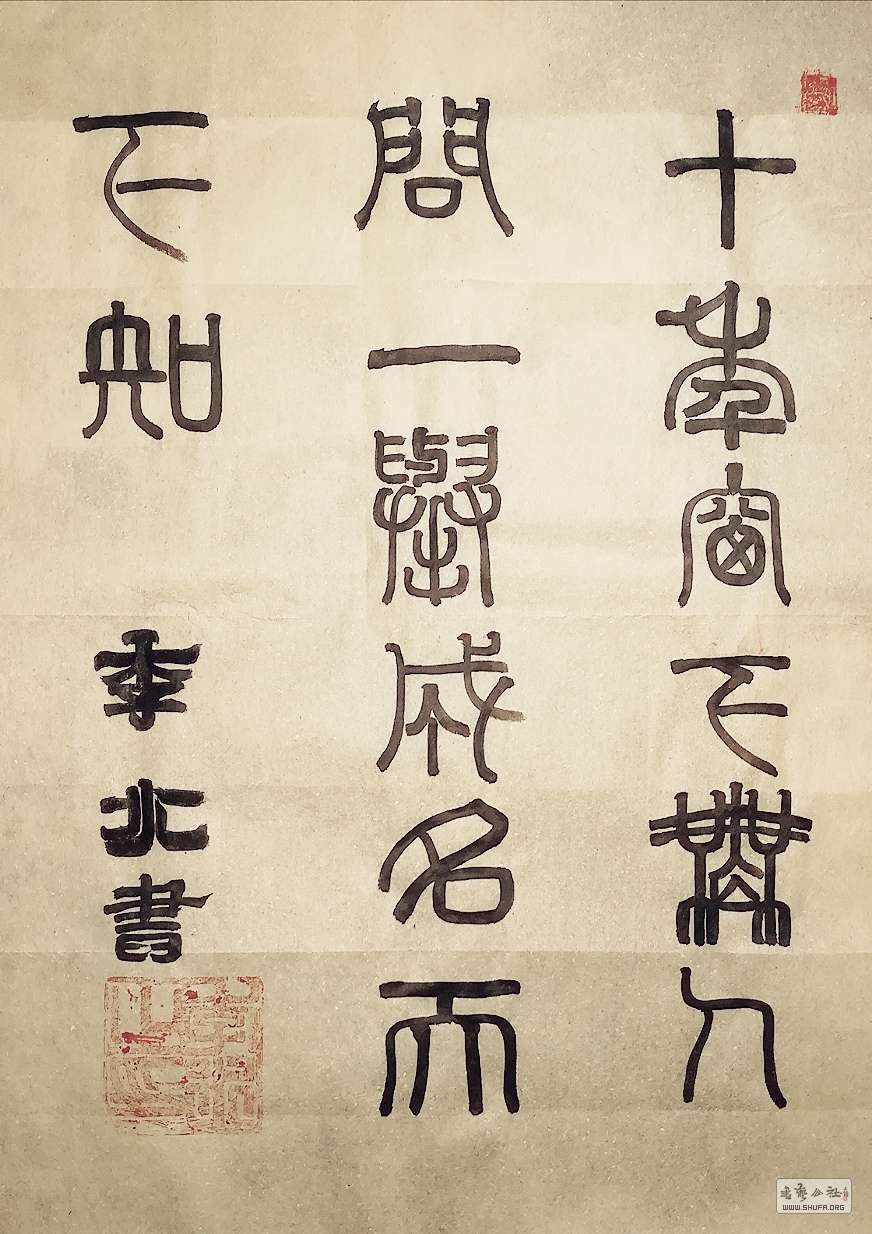 十年窗下無人
問一舉成名天
下知
李北書
書藝公社
WWW.SHUFA.ORG